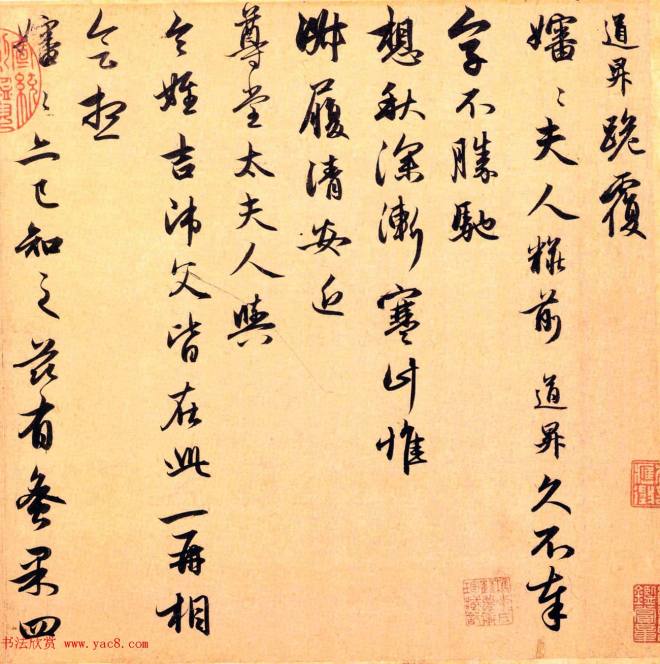 道昇跪覆
嬸〻夫人糚前道昇久不奉
字不勝馳
想秋深漸寒計惟
淑履清安近
尊堂太夫人與
令姪吉师父皆在此一再相
會想
嬸〻亦已知之茲有蜜果四
书法欣赏 www.yac8.com